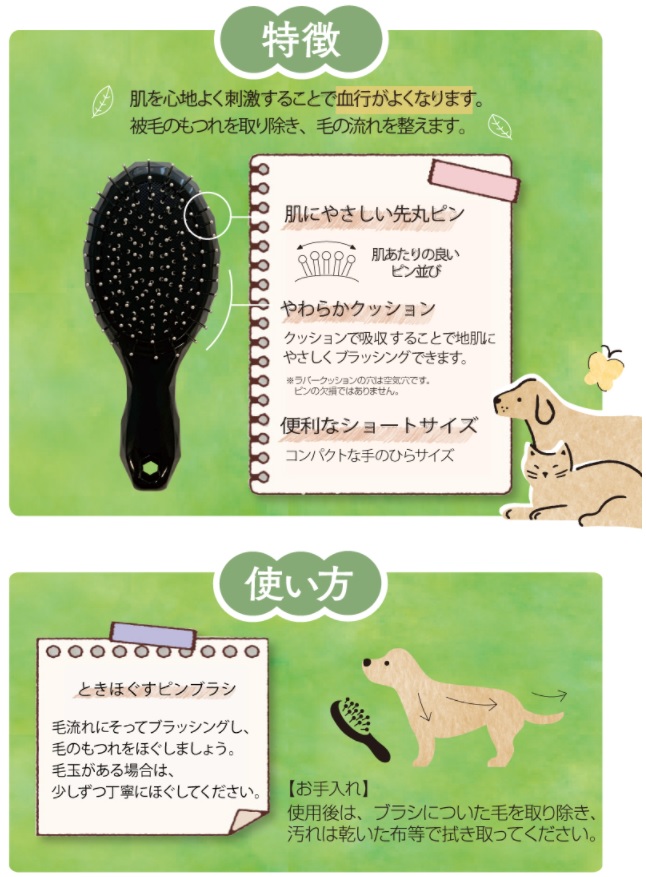 特徴
肌を心地よく刺激することで血行がよくなります。
被毛のもつれを取り除き、毛の流れを整えます。
肌にやさしい先丸ピン
肌あたりの良い
ピン並び
やわらかクッション
クッションで吸収することで地肌に
やさしくブラッシングできます。
※ラバークッションの穴は空気穴です。
ピンの欠損ではありません。
便利なショートサイズ
コンパクトな手のひらサイズ
使い方
ときほぐすピンブラシ
毛流れにそってブラッシングし、
毛のもつれをほぐしましょう。
毛玉がある場合は、
少しずつ丁寧にほぐしてください。
【お手入れ】
使用後は、ブラシについた毛を取り除き、
汚れは乾いた布等で拭き取ってください。